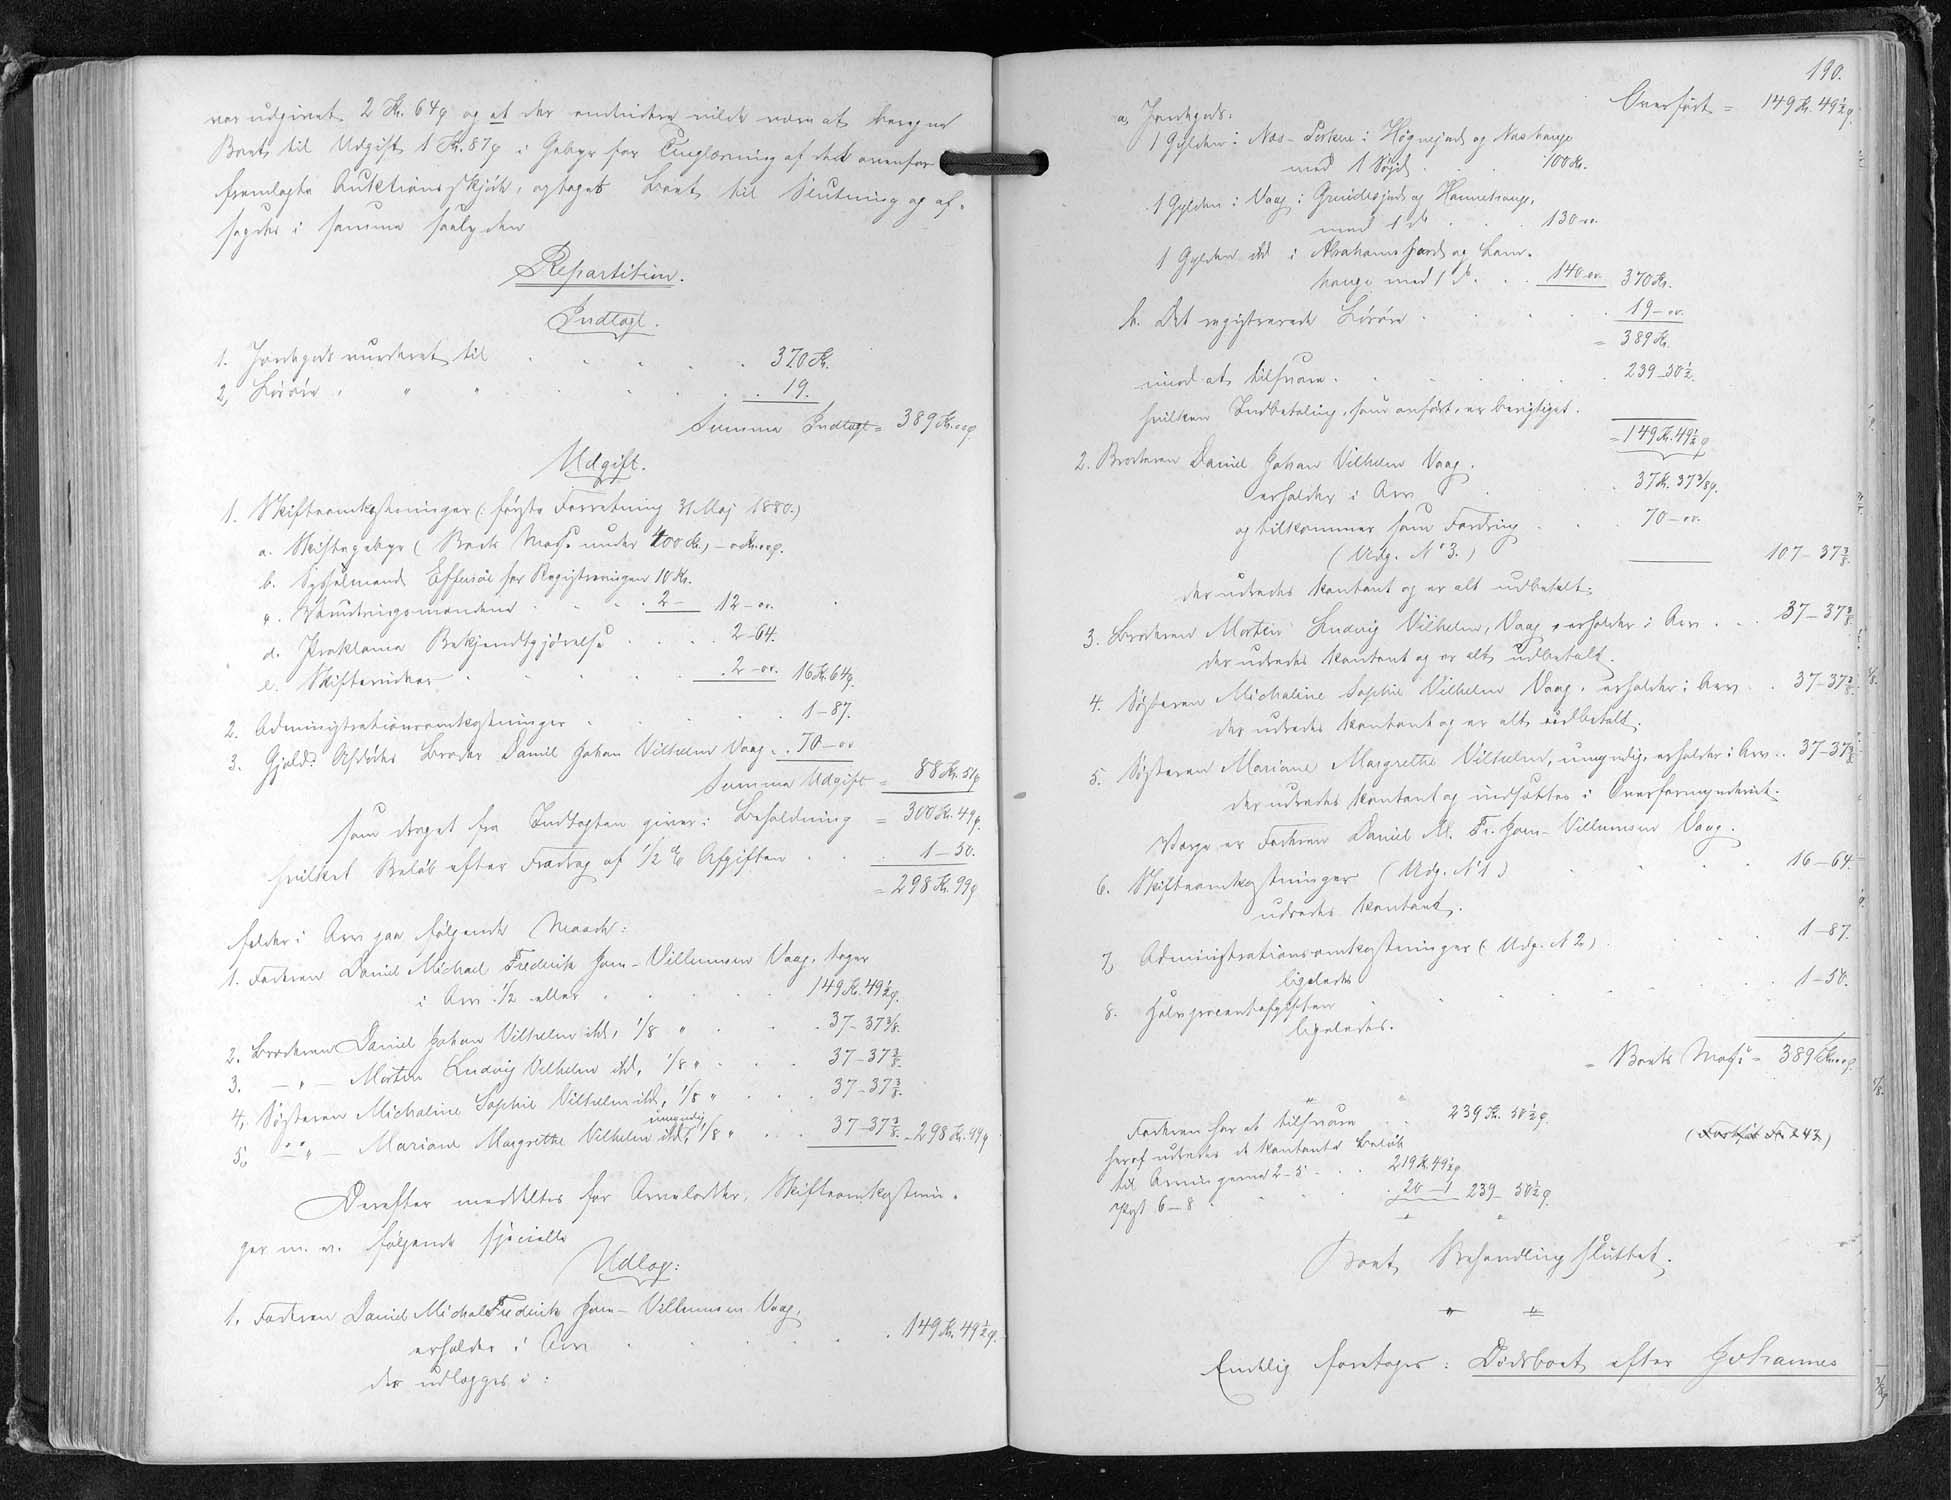 var udgivet 2 Kr. 64 ø og at der endvidere vilde være at beregne
Boets til Udgift 1 Kr. 87 ø i Gebyr for Tinglæsning af det ovenfor
fremlagte Auktionsskjøde, optoges Boet til Slutning og af-
sagdes i samme saalydende
Repartition.
Indtægt.
1. Jordegods vurderet til . . . . 370 Kr.
2, Løsøre " " " . . . 19.
Summa Indtægt = 389 Kr. oo ø.
Udgift.
1. Skifteomkostninger (: første Forretning 31 Maj 1880.)
a. Skiftegebyr (Boets Masse under 400 Kr.) - o Kr. oo ø.
b. Sysselmands Effersøe for Registreringen 10 Kr.
c. Vurderingsmændene . . . . 2 - 12 - oo.
d. Proklama Bekjendtgjørelse . . . . 2 - 64.
e. Skiftevidner . . . . 2 - oo. 16 Kr. 64 ø.
2. Administrationsomkostninger . . . . 1 - 87.
3. Gjæld: Afdødes Broder Daniel Johan Vilhelm Vaag . . 70 - oo
Summa Udgift = 88 Kr. 51 ø
som draget fra Indtægten giver: Beholdning = 300 Kr. 49 ø.
hvilket Beløb efter Fradrag af 1/2 % Afgiften . . . 1 - 50.
= 298 Kr. 99 ø
falder i Arv paa følgende Maade:
1. Faderen Daniel Michael Frederik Joen-Villumsen Vaag, tager
i Arv 1/2 eller . . . . 149 Kr. 49 1/2 ø.
2. Broderen Daniel Johan Vilhelm ibd, 1/8 " . . . 37 - 37 3/8.
3. - " - Morten Ludvig Vilhelm ibd, 1/8 " . . . 37 - 37 3/8.
4, Søsteren Michaline Sophie Vilhelm ibd, 1/8 " . . . 37 - 37 3/8.
5, - " - Mariane Margrethe Vilhelm ibd, umyndig, 1/8 " . . . 37 - 37 3/8. = 298 Kr. 99 ø
Derefter meddeltes for Arvelodder, Skifteomkostnin-
ger m. v. følgende specielle
Udlæg:
1. Faderen Daniel Michael Frederik Joen-Villumsen Vaag,
erholder i Arv . . . . 149 Kr. 49 1/2 ø.
der udlægges i:
190.
Overført = 149 Kr. 49 1/2 ø.
a, Jordegods:
1 Gylden i Næs- i Høgnejords og
med 1 . . . 100 Kr.
1 Gylden i Vaag i og
med 1 . . . 130 - oo.
1 Gylden ibd i Abrahams og
med 1 . . . 140 - oo. 370 Kr.
b. Det registrerede Løsøre . . . . 19 - oo.
= 389 Kr.
imod at tilsvare . . . . 239 - 50 1/2.
hvilken Indbetaling, som anført, er berigtiget.
= 149 Kr. 49 1/2 ø
2. Broderen Daniel Johan Vilhelm Vaag.
erholder i Arv . . . . 37 Kr. 37 3/8 ø.
og tilkommer som Fordring . . . 70 - oo.
(Udg. No 3.) 107 - 37 3/8.
der udredes kontant og er alt udbetalt.
3. Broderen Morten Ludvig Vilhelm, Vaag, erholder i Arv . . . 37 - 37 3/8.
der udredes kontant og er alt udbetalt.
4. Søsteren Michaline Sophie Vilhelm Vaag, erholder i Arv . . 37 - 37 3/8.
der udredes kontant og er alt udbetalt.
5. Søsteren Mariane Margrethe Vilhelm, umyndig, erholder i Arv . . 37 - 37 3/8
der udredes kontant og indsættes i Overformynderiet.
Værge er Faderen Daniel M. Fr. Joen-Villumsen Vaag.
6. Skifteomkostninger (Udg. No 1) . . . 16 - 64.
udredes kontant.
7, Administrationsomkostninger (Udg. No 2) . . . 1 - 87.
ligeledes
8. Halvprocentafgiften . . . . 1 - 50.
ligeledes.
= Boets Masse = 389 Kr. oo ø.
Faderen har at tilsvare . . . 239 Kr. 50 1/2 ø.
heraf udredes de kontante Beløb
til Arvingerne 2 - 5 . . . 219 Kr. 49 1/2 ø
Post 6 - 8 . . . . 20 - 1 239 - 50 1/2 ø.
Boets Behandling sluttet.
Endelig foretoges: Dødsboet efter Johannes